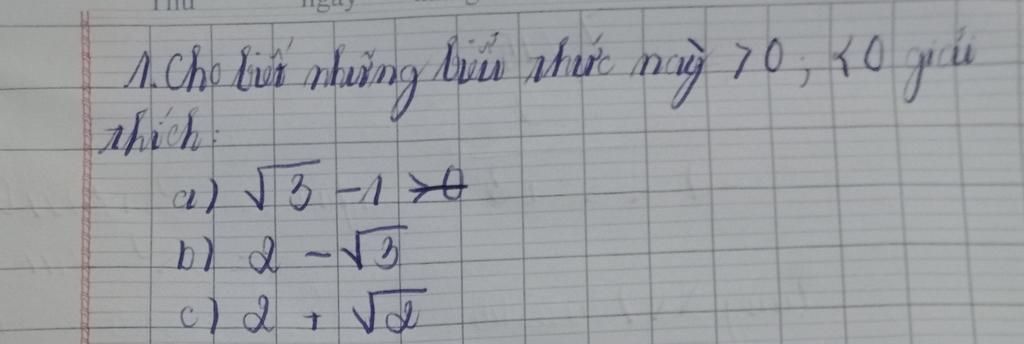 Thứ ngày
1. Cho biết những biểu thức này > 0, < 0 giải
thích:
a) √3 - 1 > 0
b) 2 - √3
c) 2 + √2